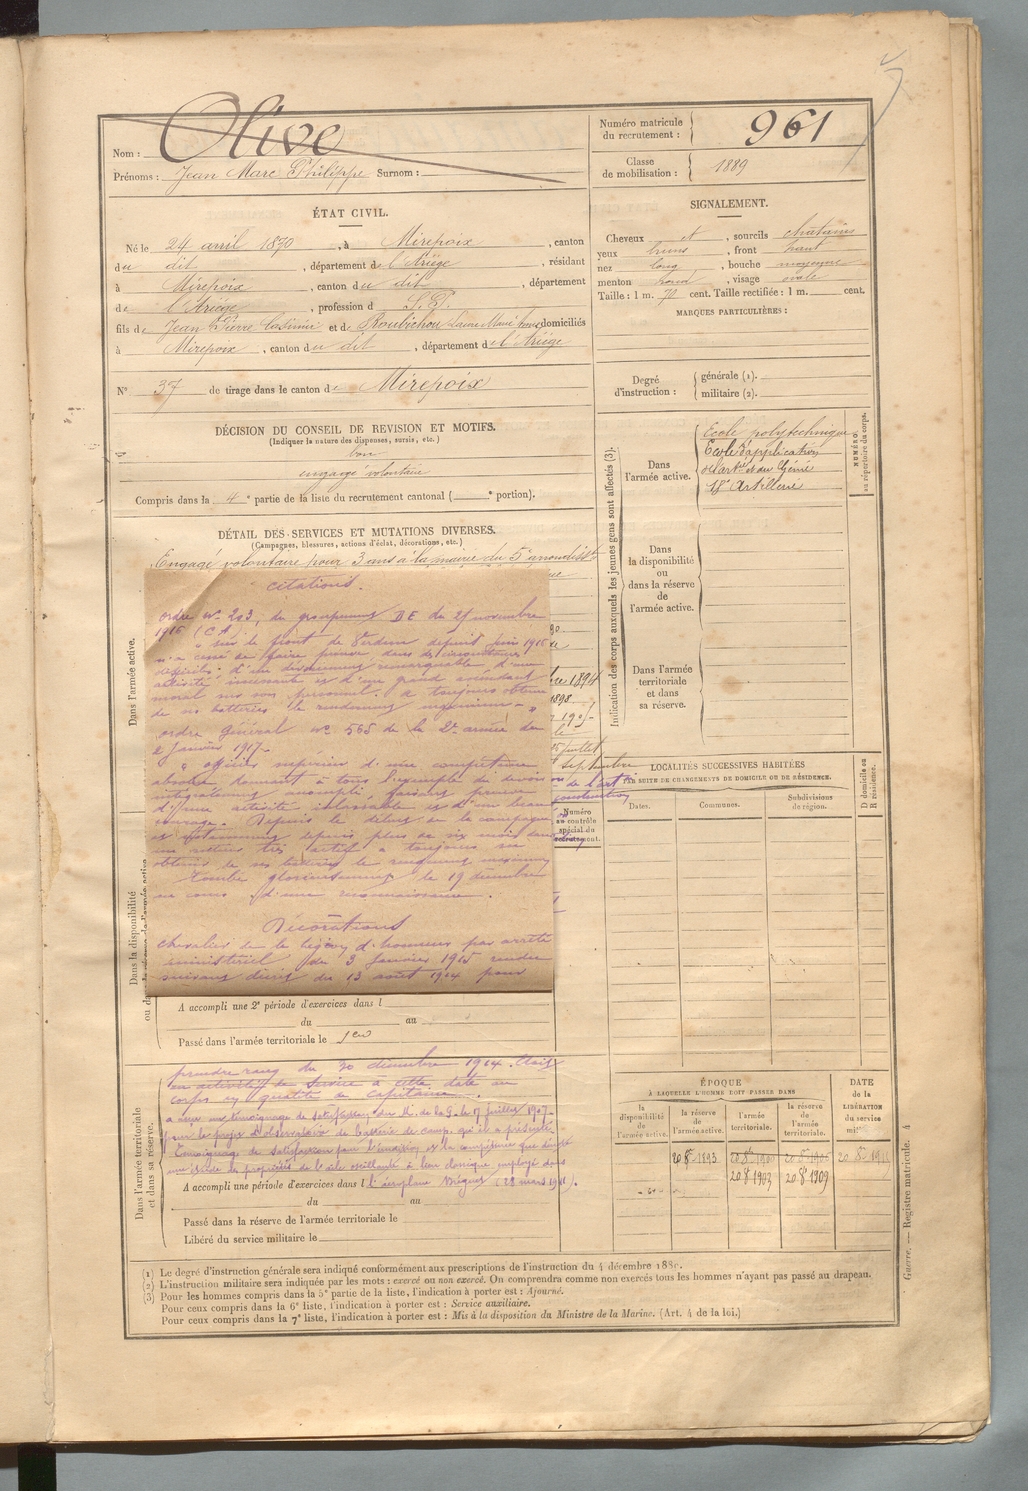 Nom : Olive
Prénoms : Jean Marc Philippe Surnom :
Numéro matricule du recrutement : 961
Classe de mobilisation : 1889
ÉTAT CIVIL.
Né le 24 avril 1870, à Mirepoix, canton
du dit, département de l'Ariège, résidant
à Mirepoix, canton du dit, département
de l'Ariège, profession d S.P.
fils de Jean Pierre Casimir et de Roubichou Laure Marie domiciliés
à Mirepoix, canton du dit, département de l'Ariège
N° 37 de tirage dans le canton de Mirepoix
SIGNALEMENT.
Cheveux et, sourcils chatains
yeux bruns, front haut
nez long, bouche moyenne
menton rond, visage ovale
Taille : 1 m. 70 cent. Taille rectifiée : 1 m. cent.
MARQUES PARTICULIÈRES :
Degré d'instruction : générale (1).
militaire (2).
DÉCISION DU CONSEIL DE REVISION ET MOTIFS.
(Indiquer la nature des dispenses, sursis, etc.)
bon
engagé volontaire
Compris dans la 4e partie de la liste du recrutement cantonal ( e portion).
DÉTAIL DES SERVICES ET MUTATIONS DIVERSES.
(Campagnes, blessures, actions d'éclat, décorations, etc.)
Engagé volontaire pour 3 ans à la mairie du 5e arrondisst
Dans l'armée active.
Citations.
ordre No 203, du groupement DE du 27 novembre
1916 (C.A.
" sur le front de Verdun depuis juin 1916
n'a cessé de faire preuve dans des circonstances
difficiles d'un dévouement remarquable d'une
activité incessante et d'un grand ascendant
moral sur son personnel. a toujours obtenu
de ses batteries le rendement
ordre Général No 568 de la 2e armée du
2 Janvier 1917.
" officier supérieur d'une compétence
absolue donnant à tous l'exemple du devoir
intégralement accompli faisant preuve
d'une activité inlassable et d'un beau
courage. Depuis le début de la campagne
et notamment depuis plus de six mois dans
un secteur très actif a toujours su
obtenir de ses batteries le rendement maximum
Tombé glorieusement le 19 décembre
au cours d'une reconnaissance.
Décorations
chevalier de la légion d'honneur par arrêté
ministériel du 3 Janvier 1915 rendu
suivant décret du 13 août 1914 pour
prendre rang du 30 décembre 1914. Etait
en activité de service à cette date au
corps en qualité de capitaine.
a eu un témoignage de satisfaction du M. de la G. le 17 juillet 1907
pour le projet d'observatoire de batterie de camp. qu'il a présenté
Témoignage de satisfaction pour l'
une étude des propriétés de
l'aéroplane Bréguet (28 mars 1911).
Dans la disponibilité ou dans la réserve de l'armée active
A accompli une 2e période d'exercices dans l
du au
Passé dans l'armée territoriale le
Dans l'armée territoriale et dans sa réserve.
A accompli une période d'exercices dans l
du au
Passé dans la réserve de l'armée territoriale le
Libéré du service militaire le
Indication des corps auxquels les jeunes gens sont affectés (3).
NUMÉRO au répertoire du corps.
Dans l'armée active.
Ecole polytechnique
Ecole d'application
d'art'ie et du Génie
18e Artillerie
Dans la disponibilité ou dans la réserve de l'armée active.
Dans l'armée territoriale et dans sa réserve.
Septembre
LOCALITÉS SUCCESSIVES HABITÉES
PAR SUITE DE CHANGEMENTS DE DOMICILE OU DE RÉSIDENCE.
D domicile ou R résidence.
Dates. Communes. Subdivisions du région.
Numéro au contrôle spécial du recrutement.
ÉPOQUE
À LAQUELLE L'HOMME DOIT PASSER DANS
la disponibilité de l'armée active.
la réserve de l'armée active.
l'armée territoriale.
la réserve de l'armée territoriale.
DATE de la LIBÉRATION du service mil.re
20 8 1893
20 8 1903 20 8 1909
(1) Le degré d'instruction générale sera indiqué conformément aux prescriptions de l'instruction du 4 décembre 1889.
(2) L'instruction militaire sera indiquée par les mots : exercé ou non exercé. On comprendra comme non exercés tous les hommes n'ayant pas passé au drapeau.
(3) Pour les hommes compris dans la 5e partie de la liste, l'indication à porter est : Ajourné.
Pour ceux compris dans la 6e liste, l'indication à porter est : Service auxiliaire.
Pour ceux compris dans la 7e liste, l'indication à porter est : Mis à la disposition du Ministre de la Marine. (Art. 4 de la loi.)
Guerre. — Registre matricule. 4